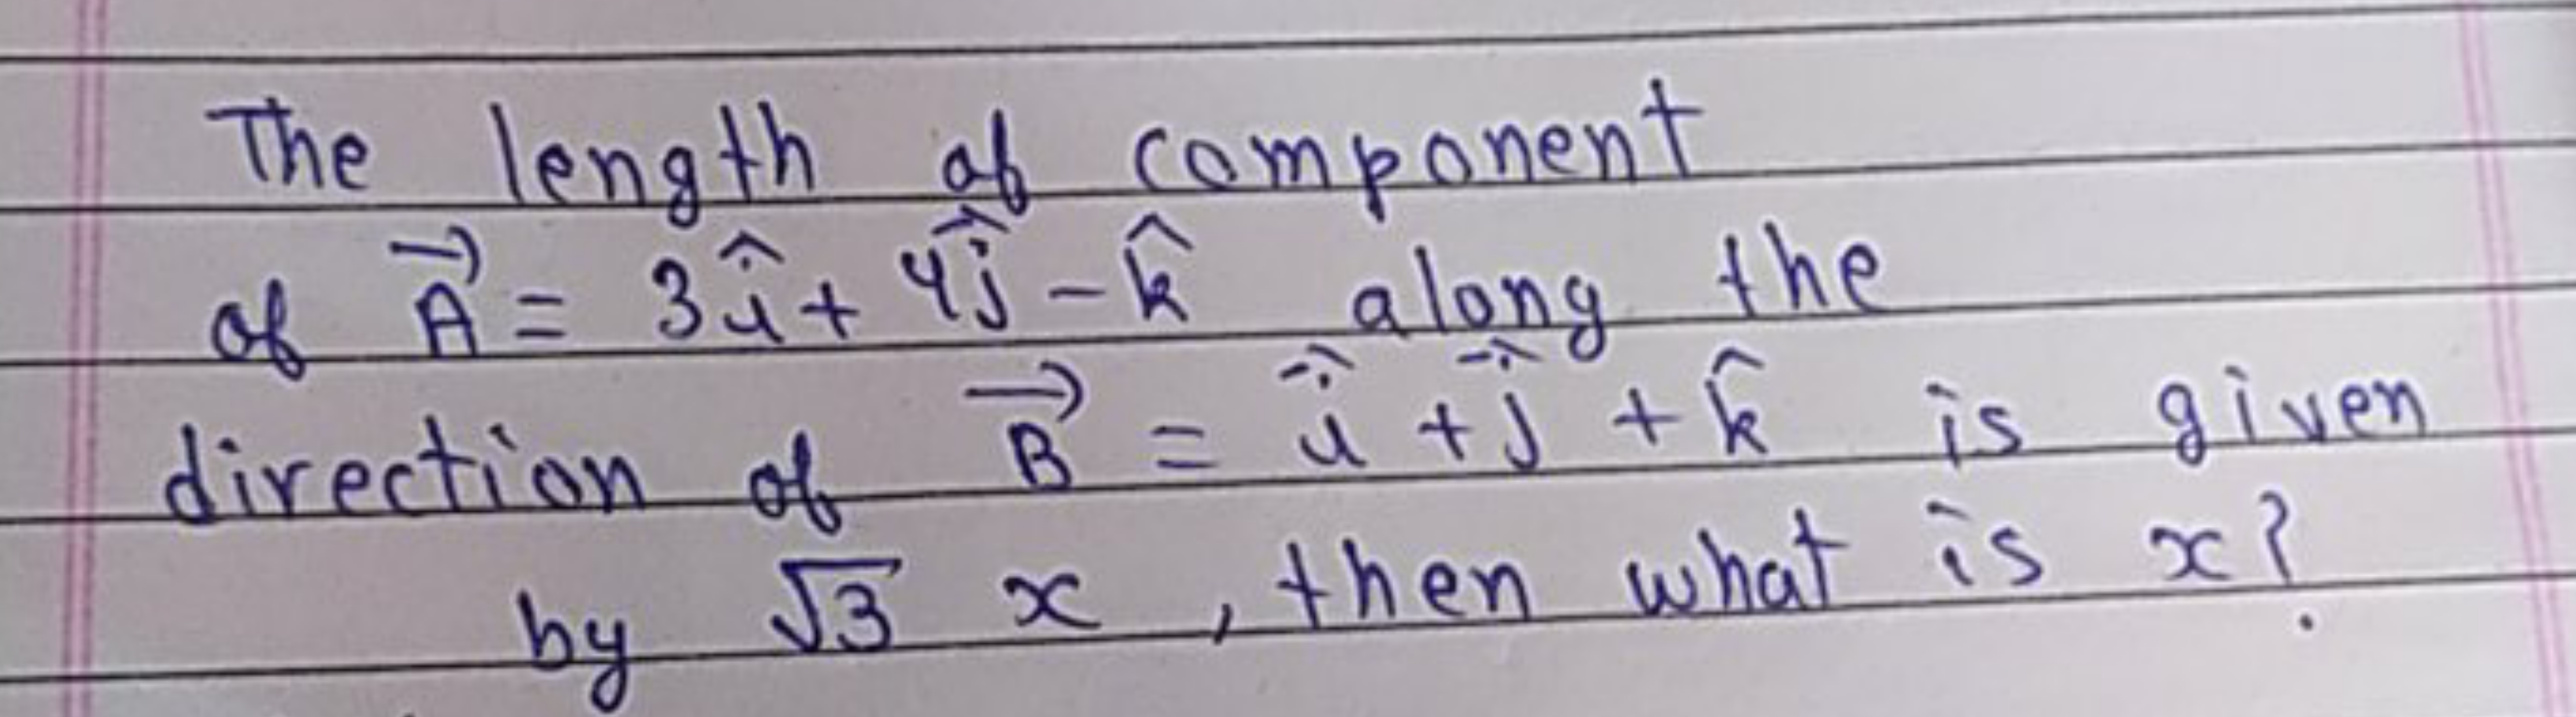 The length of component
of A⃗ = 3î + 4ĵ - k̂ along the
direction of B⃗ = î + ĵ + k̂ is given
by √3 x , then what is x?